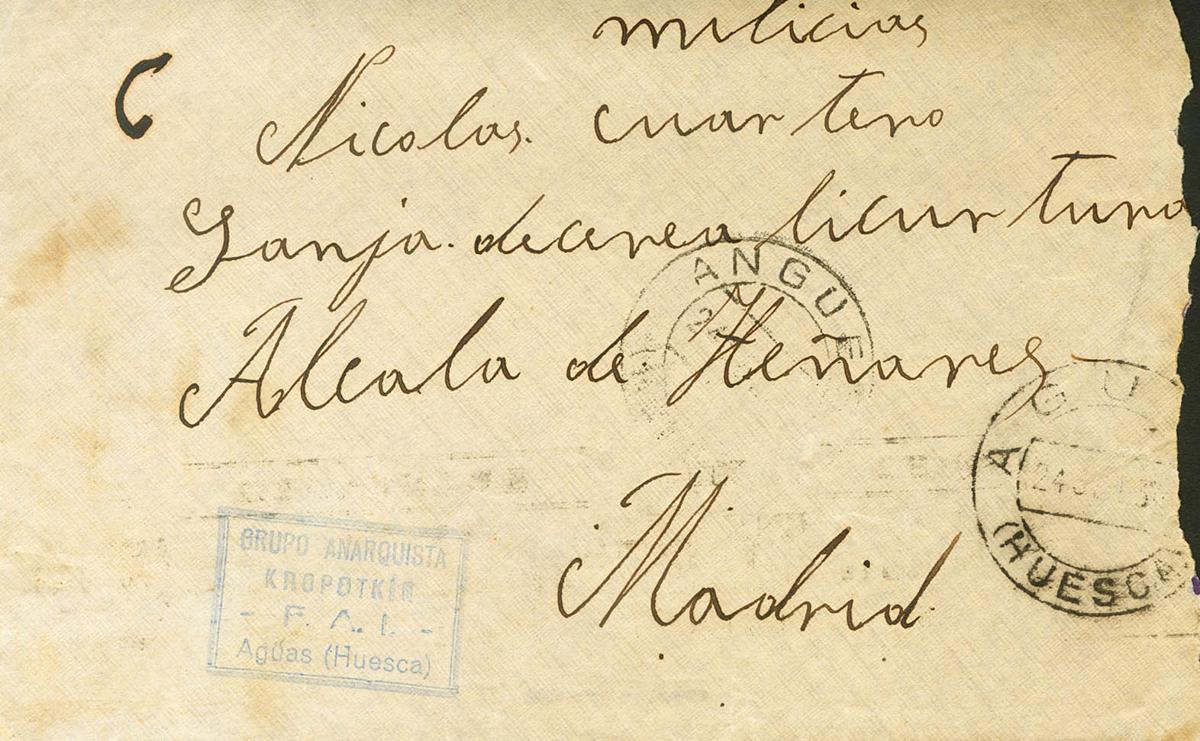 milicias
Nicolas. cuartero
Sanja. decerea licurtura
Alcala de Heñares
Madrid
ANGUE
24
AGU
24
(HUESCA)
GRUPO ANARQUISTA
KROPOTKIN
- F. A. I. -
Aguas (Huesca)